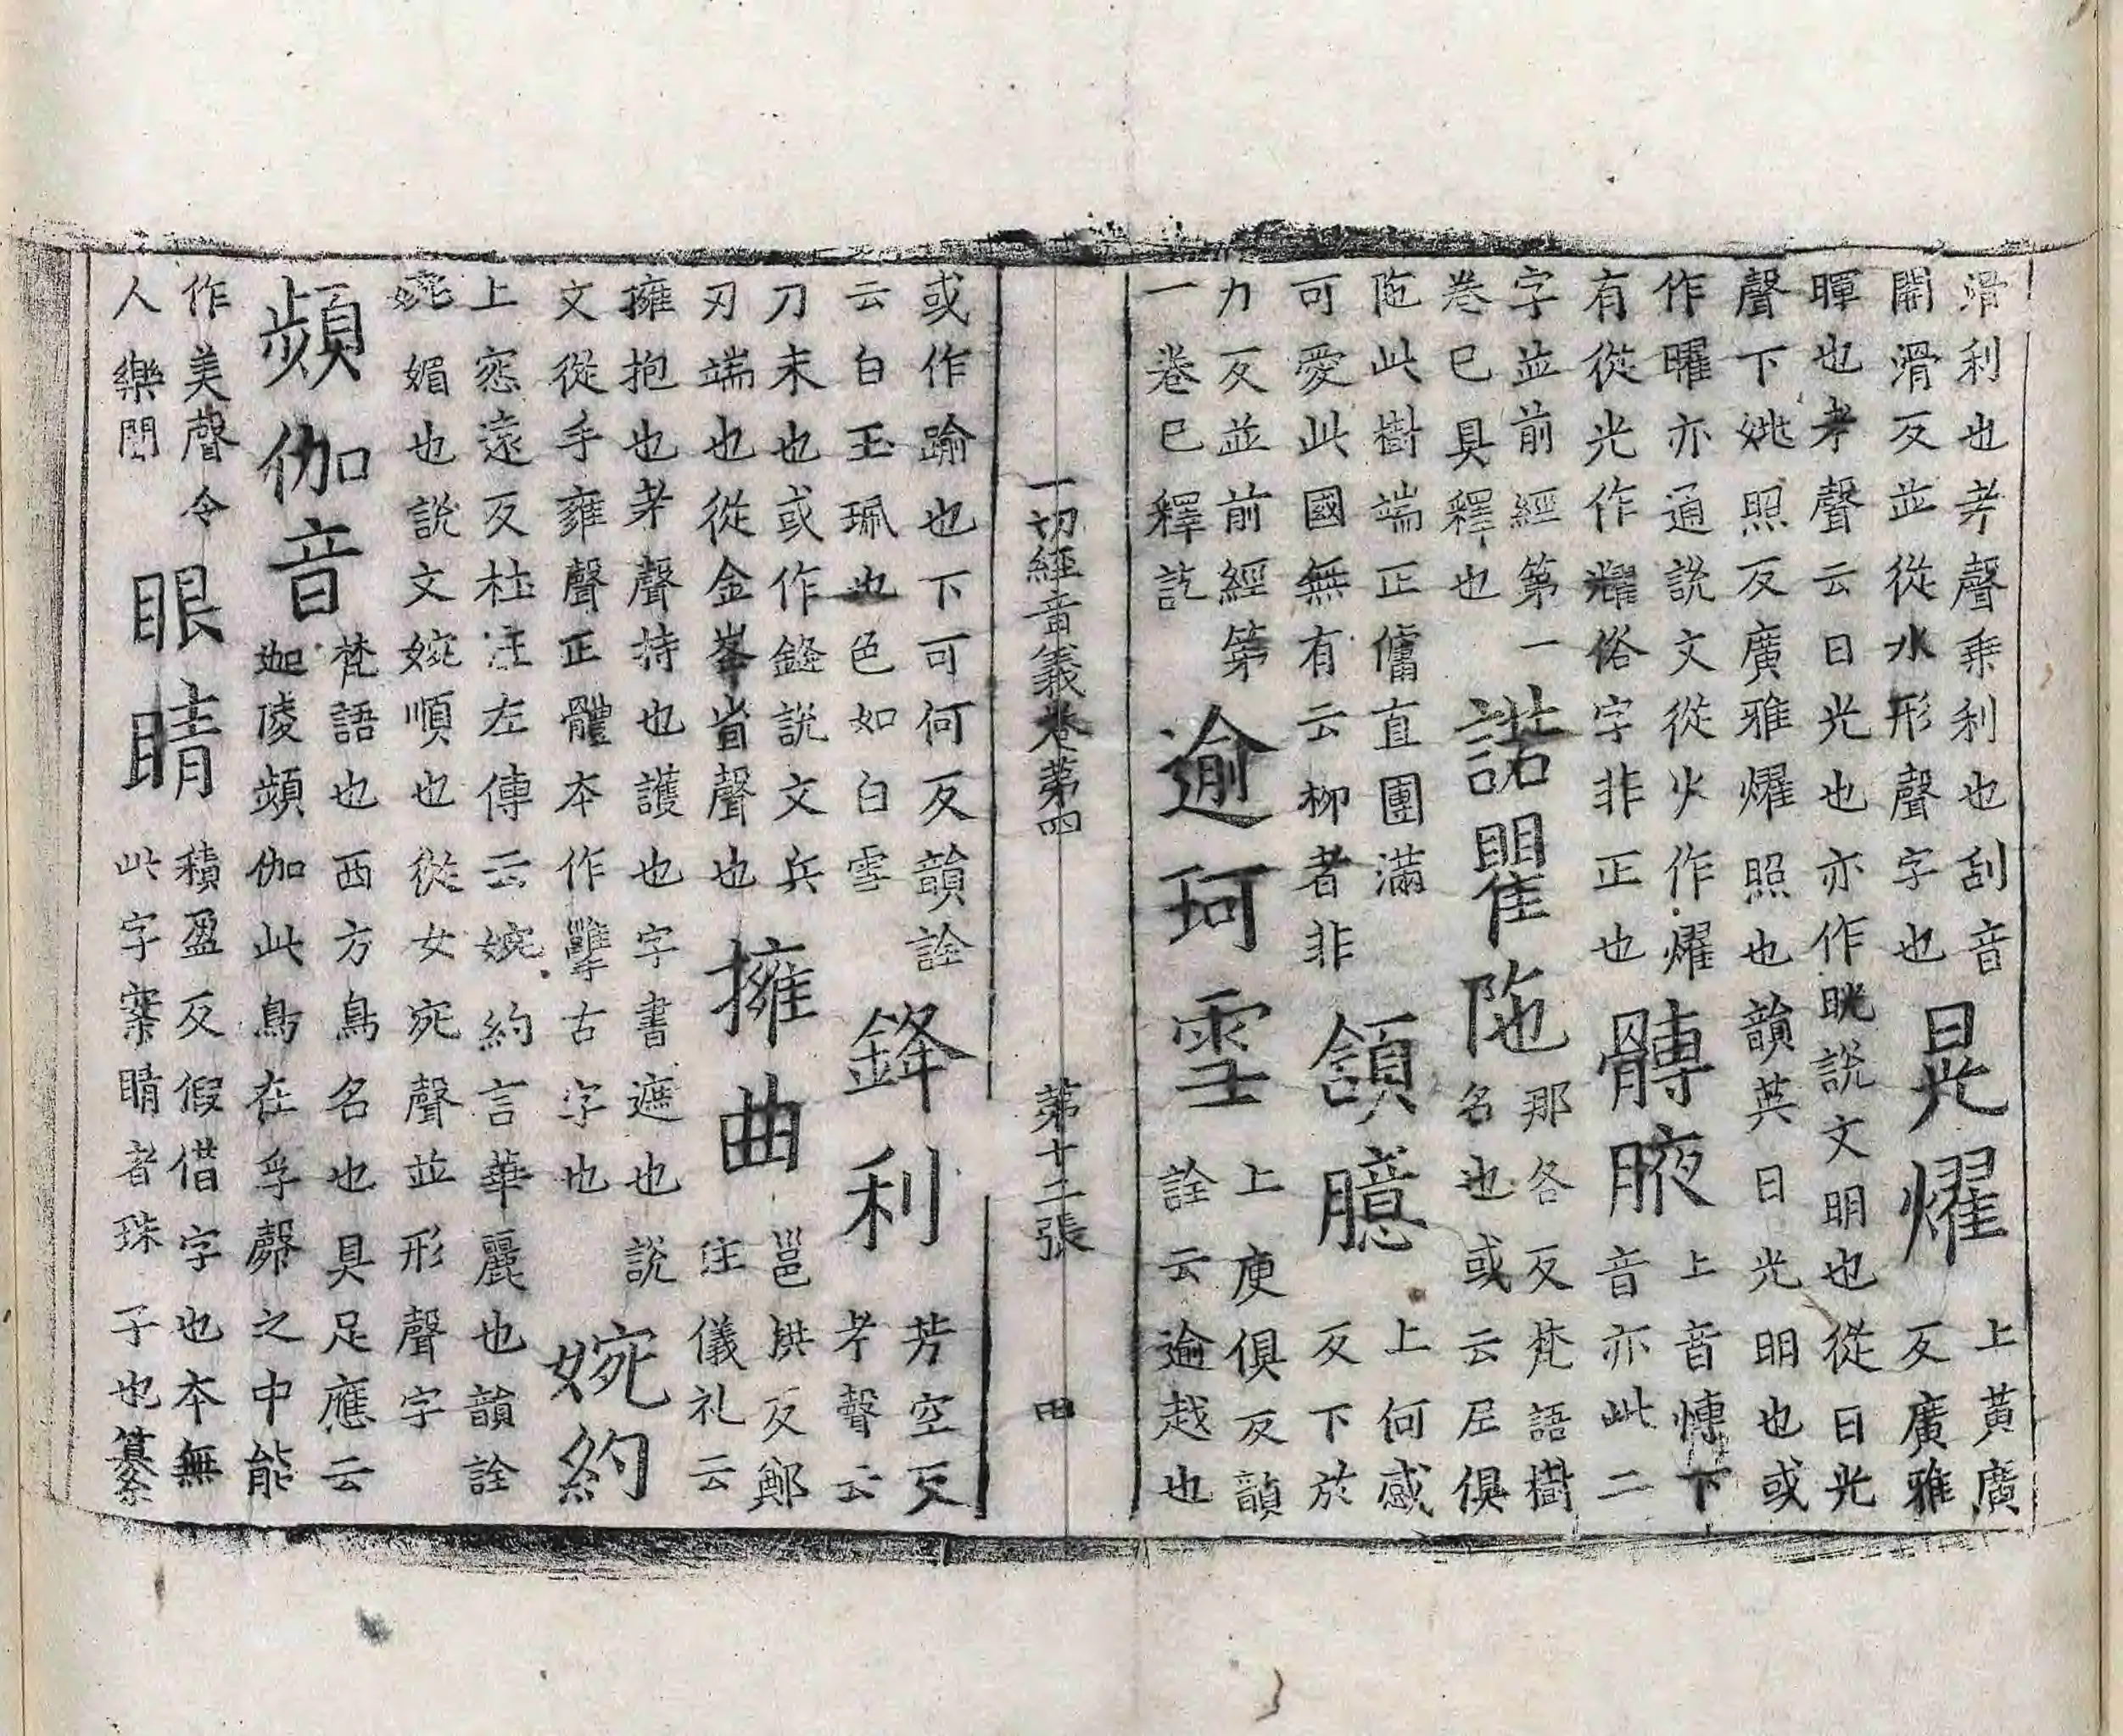 滑利也考聲乗利也刮音
關滑反並從水形聲字也
晃耀
上黃廣
反廣雅
暉也考聲云日光也亦作晄說文明也從日光
聲下姚照反廣雅燿照也韻英日光明也或
作曜亦通說文從火作燿
有從光作耀俗字非正也
髆腋
上音愽下
音亦此二
字並前經第一
卷已具釋也
諾瞿陁
那各反梵語樹
名也或云尼俱
陁此樹端正傭直團滿
可愛此國無有云柳者非
頷臆
上何感
反下於
力反並前經第
一卷已釋訖
逾珂雪
上庾俱反韻
詮云逾越也
一切經音義卷第四 第十二張 田
或作踰也下可何反韻詮
云白玉珮也色如白雪
鋒利
芳空反
考聲云
刀末也或作鋒說文兵
刃端也從金峯省聲也
擁曲
邕拱反鄭
注儀礼云
擁抱也考聲持也護也字書遮也說
文從手雍聲正體本作㩲古字也
婉約
上惌遠反杜注左傳云婉約言華麗也韻詮
婉媚也說文婉順也從女宛聲並形聲字
頻伽音
梵語也西方鳥名也具足應云
迦陵頻伽此鳥在孚㲉之中能
作美聲令
人樂聞
眼睛
積盈反假借字也本無
此字案睛者珠子也纂